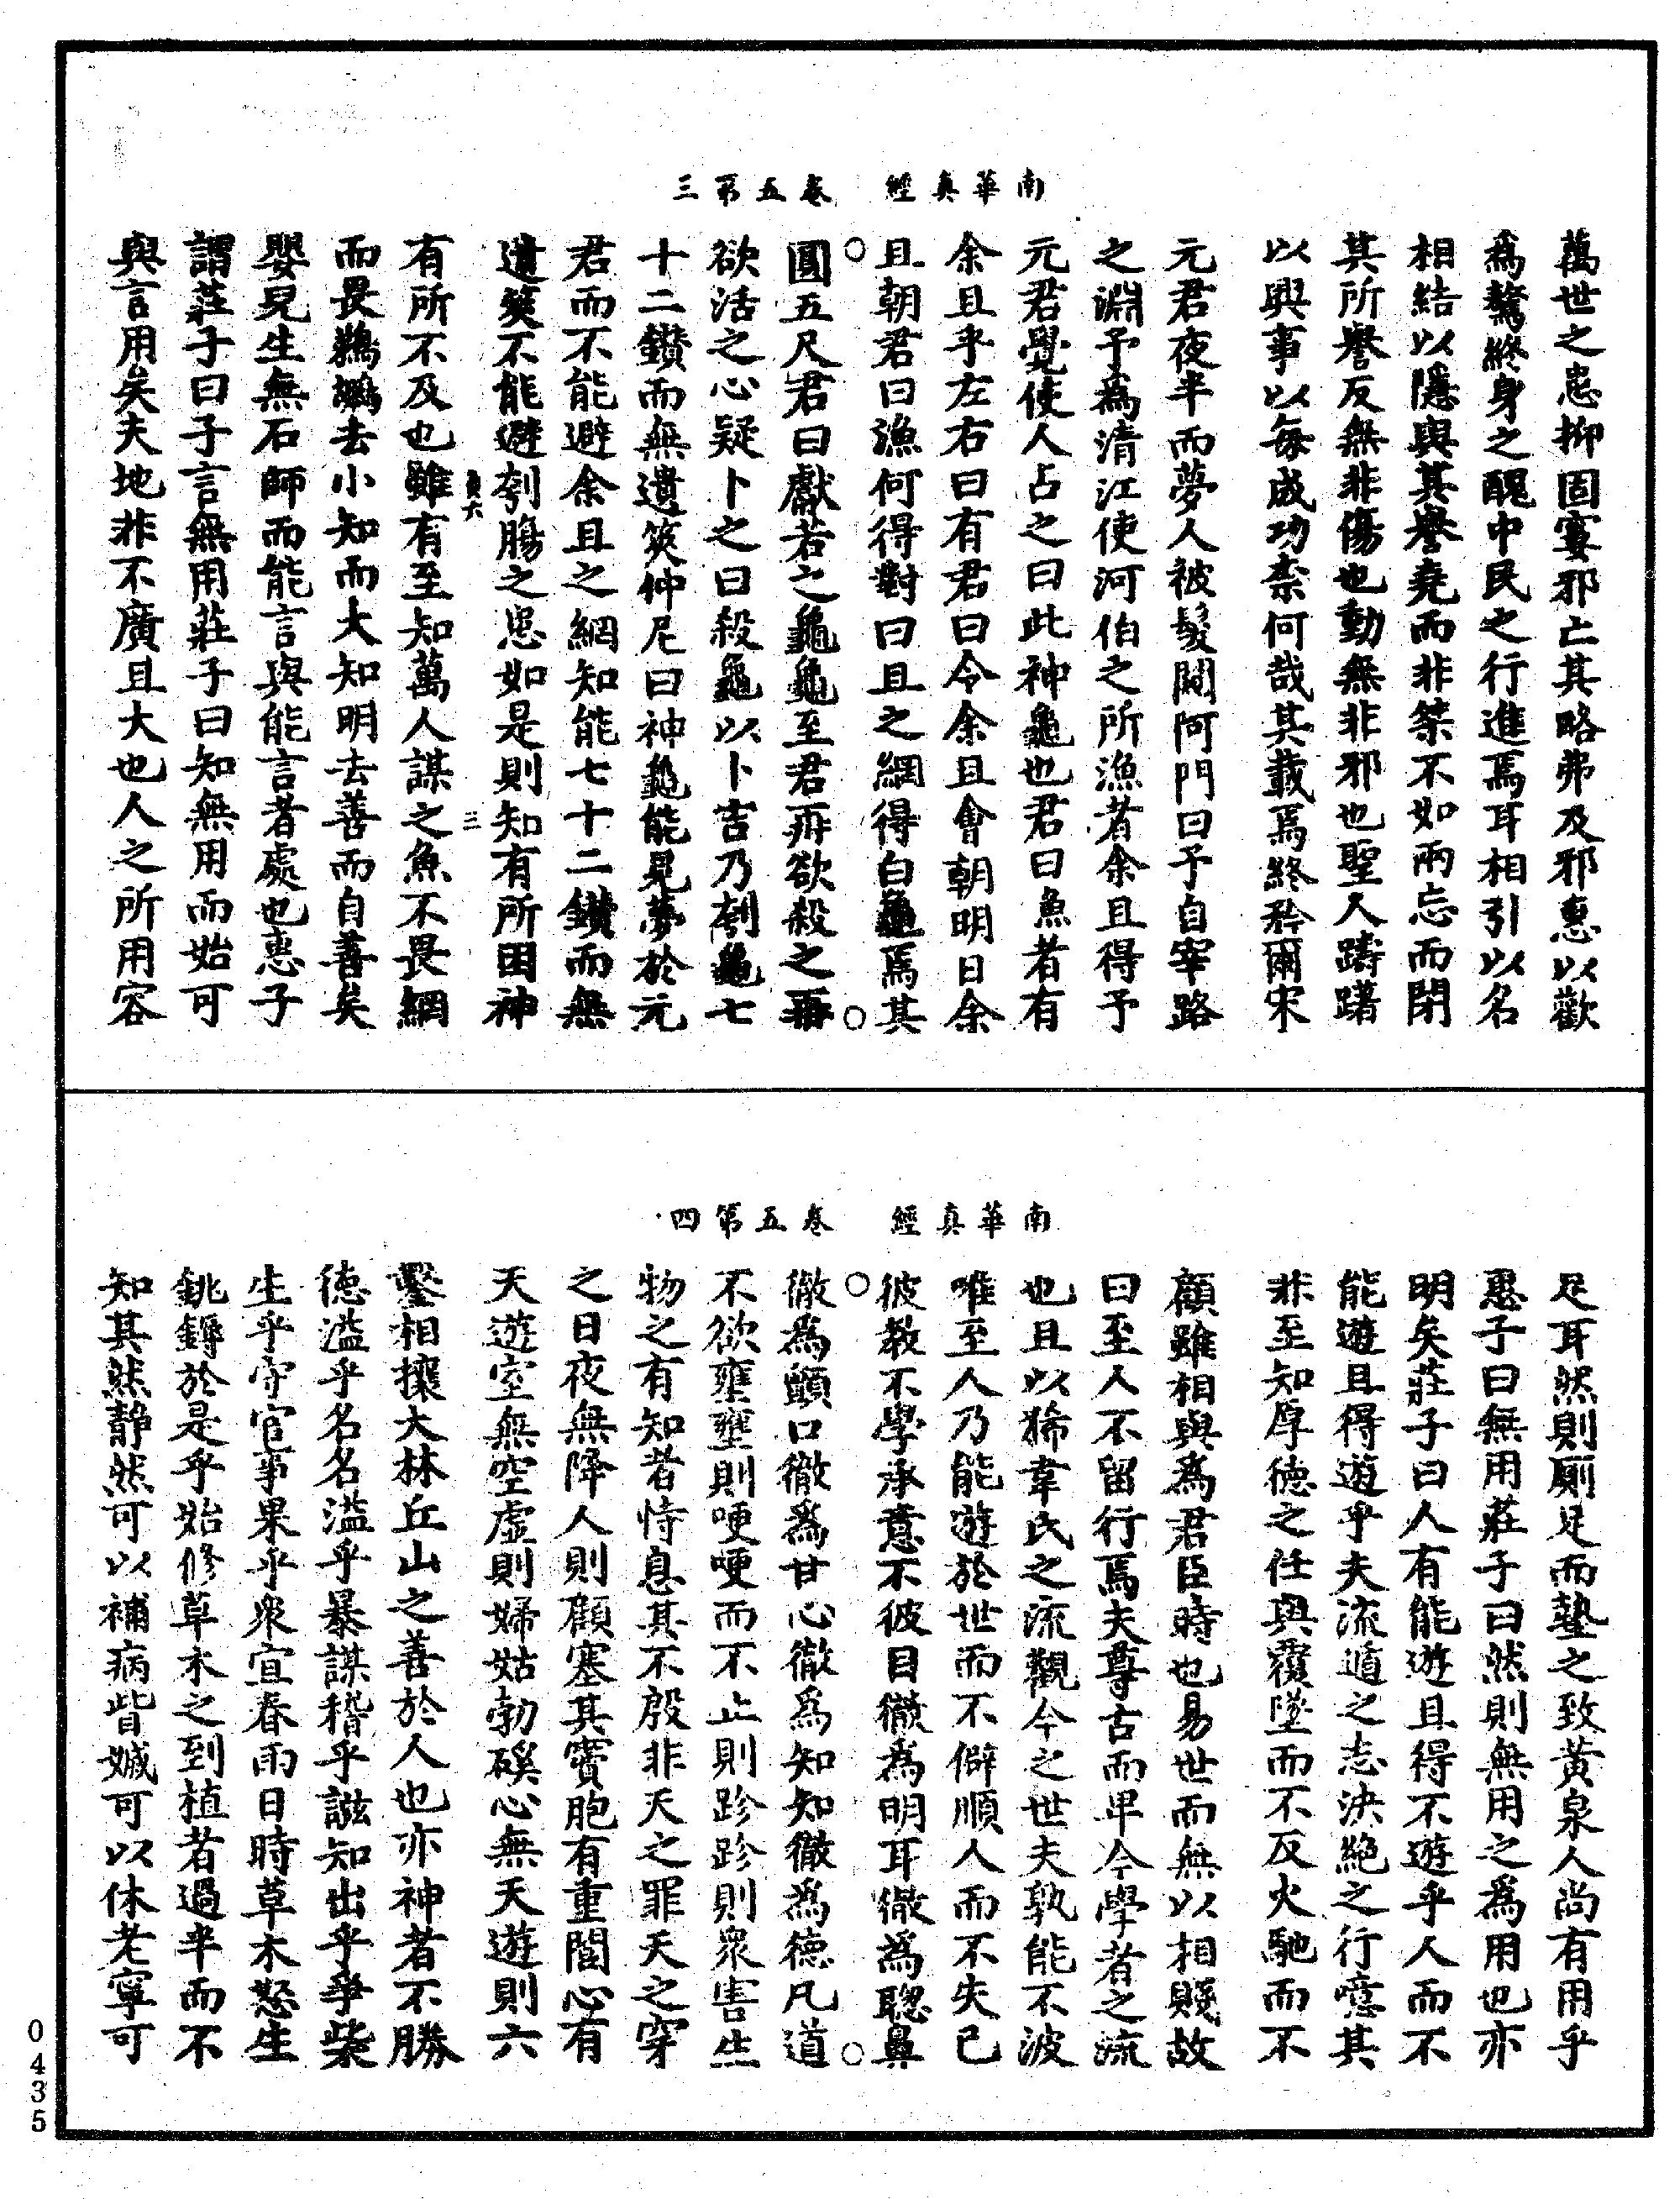 南華真經　卷五第三
萬世之患抑固窶邪亡其略弗及邪惠以歡
為驁終身之醜中民之行進焉耳相引以名
相結以隱與其譽堯而非桀不如兩忘而閉
其所譽反無非傷也動無非邪也聖人躊躇
以興事以每成功柰何哉其載焉終矜爾宋
元君夜半而夢人被髮闚阿門曰予自宰路
之淵予為清江使河伯之所漁者余且得予
元君覺使人占之曰此神龜也君曰魚者有
余且乎左右曰有君曰令余且會朝明日余
且朝君曰漁何得對曰且之網得白龜焉其
圓五尺君曰獻若之龜龜至君再欲殺之再
欲活之心疑卜之曰殺龜以卜吉乃刳龜七
十二鑽而無遺筴仲尼曰神龜能見夢於元
君而不能避余且之網知能七十二鑽而無
遺筴不能避刳腸之患如是則知有所困神
六　三
有所不及也雖有至知萬人謀之魚不畏網
而畏鵜鶘去小知而大知明去善而自善矣
嬰兒生無石師而能言與能言者處也惠子
謂莊子曰子言無用莊子曰知無用而始可
與言用矣夫地非不廣且大也人之所用容
南華真經　卷五第四
足耳然則廁足而墊之致黃泉人尚有用乎
惠子曰無用莊子曰然則無用之為用也亦
明矣莊子曰人有能遊且得不遊乎人而不
能遊且得遊乎夫流遁之志決絕之行噫其
非至知厚德之任與覆墜而不反火馳而不
顧雖相與為君臣時也易世而無以相賤故
曰至人不留行焉夫尊古而卑今學者之流
也且以狶韋氏之流觀今之世夫孰能不波
唯至人乃能遊於世而不僻順人而不失己
彼教不學承意不彼目徹為明耳徹為聰鼻
徹為顫口徹為甘心徹為知知徹為德凡道
不欲壅壅則哽哽而不止則跈跈則衆害生
物之有知者恃息其不殷非天之罪天之穿
之日夜無降人則顧塞其竇胞有重閬心有
天遊室無空虛則婦姑勃磎心無天遊則六
鑿相攘大林丘山之善於人也亦神者不勝
德溢乎名名溢乎暴謀稽乎誸知出乎爭柴
生乎守官事果乎衆宜春雨日時草木怒生
銚鎒於是乎始修草木之到植者過半而不
知其然靜然可以補病眥搣可以休老寧可
0435